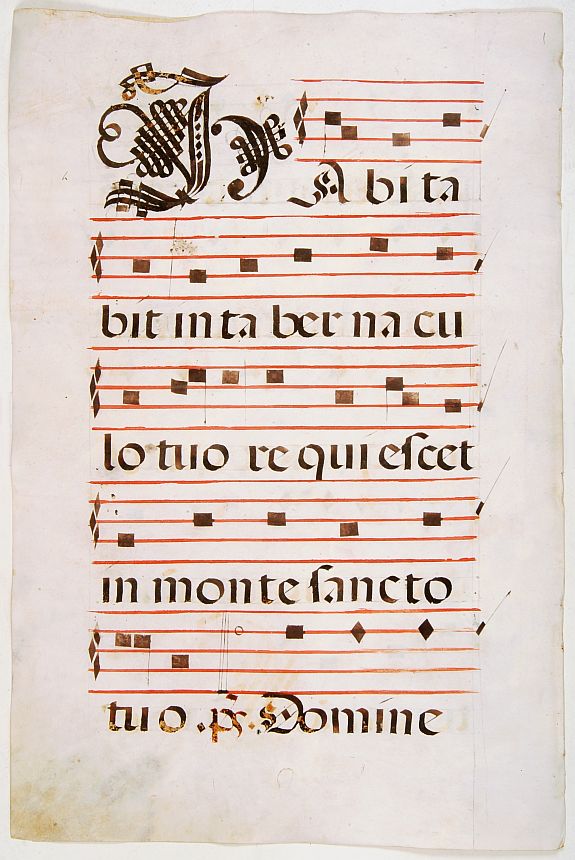 HA bi ta
bit in ta ber na cu
lo tuo re qui eſcet
in monte ſancto
tuo . ps. Domine